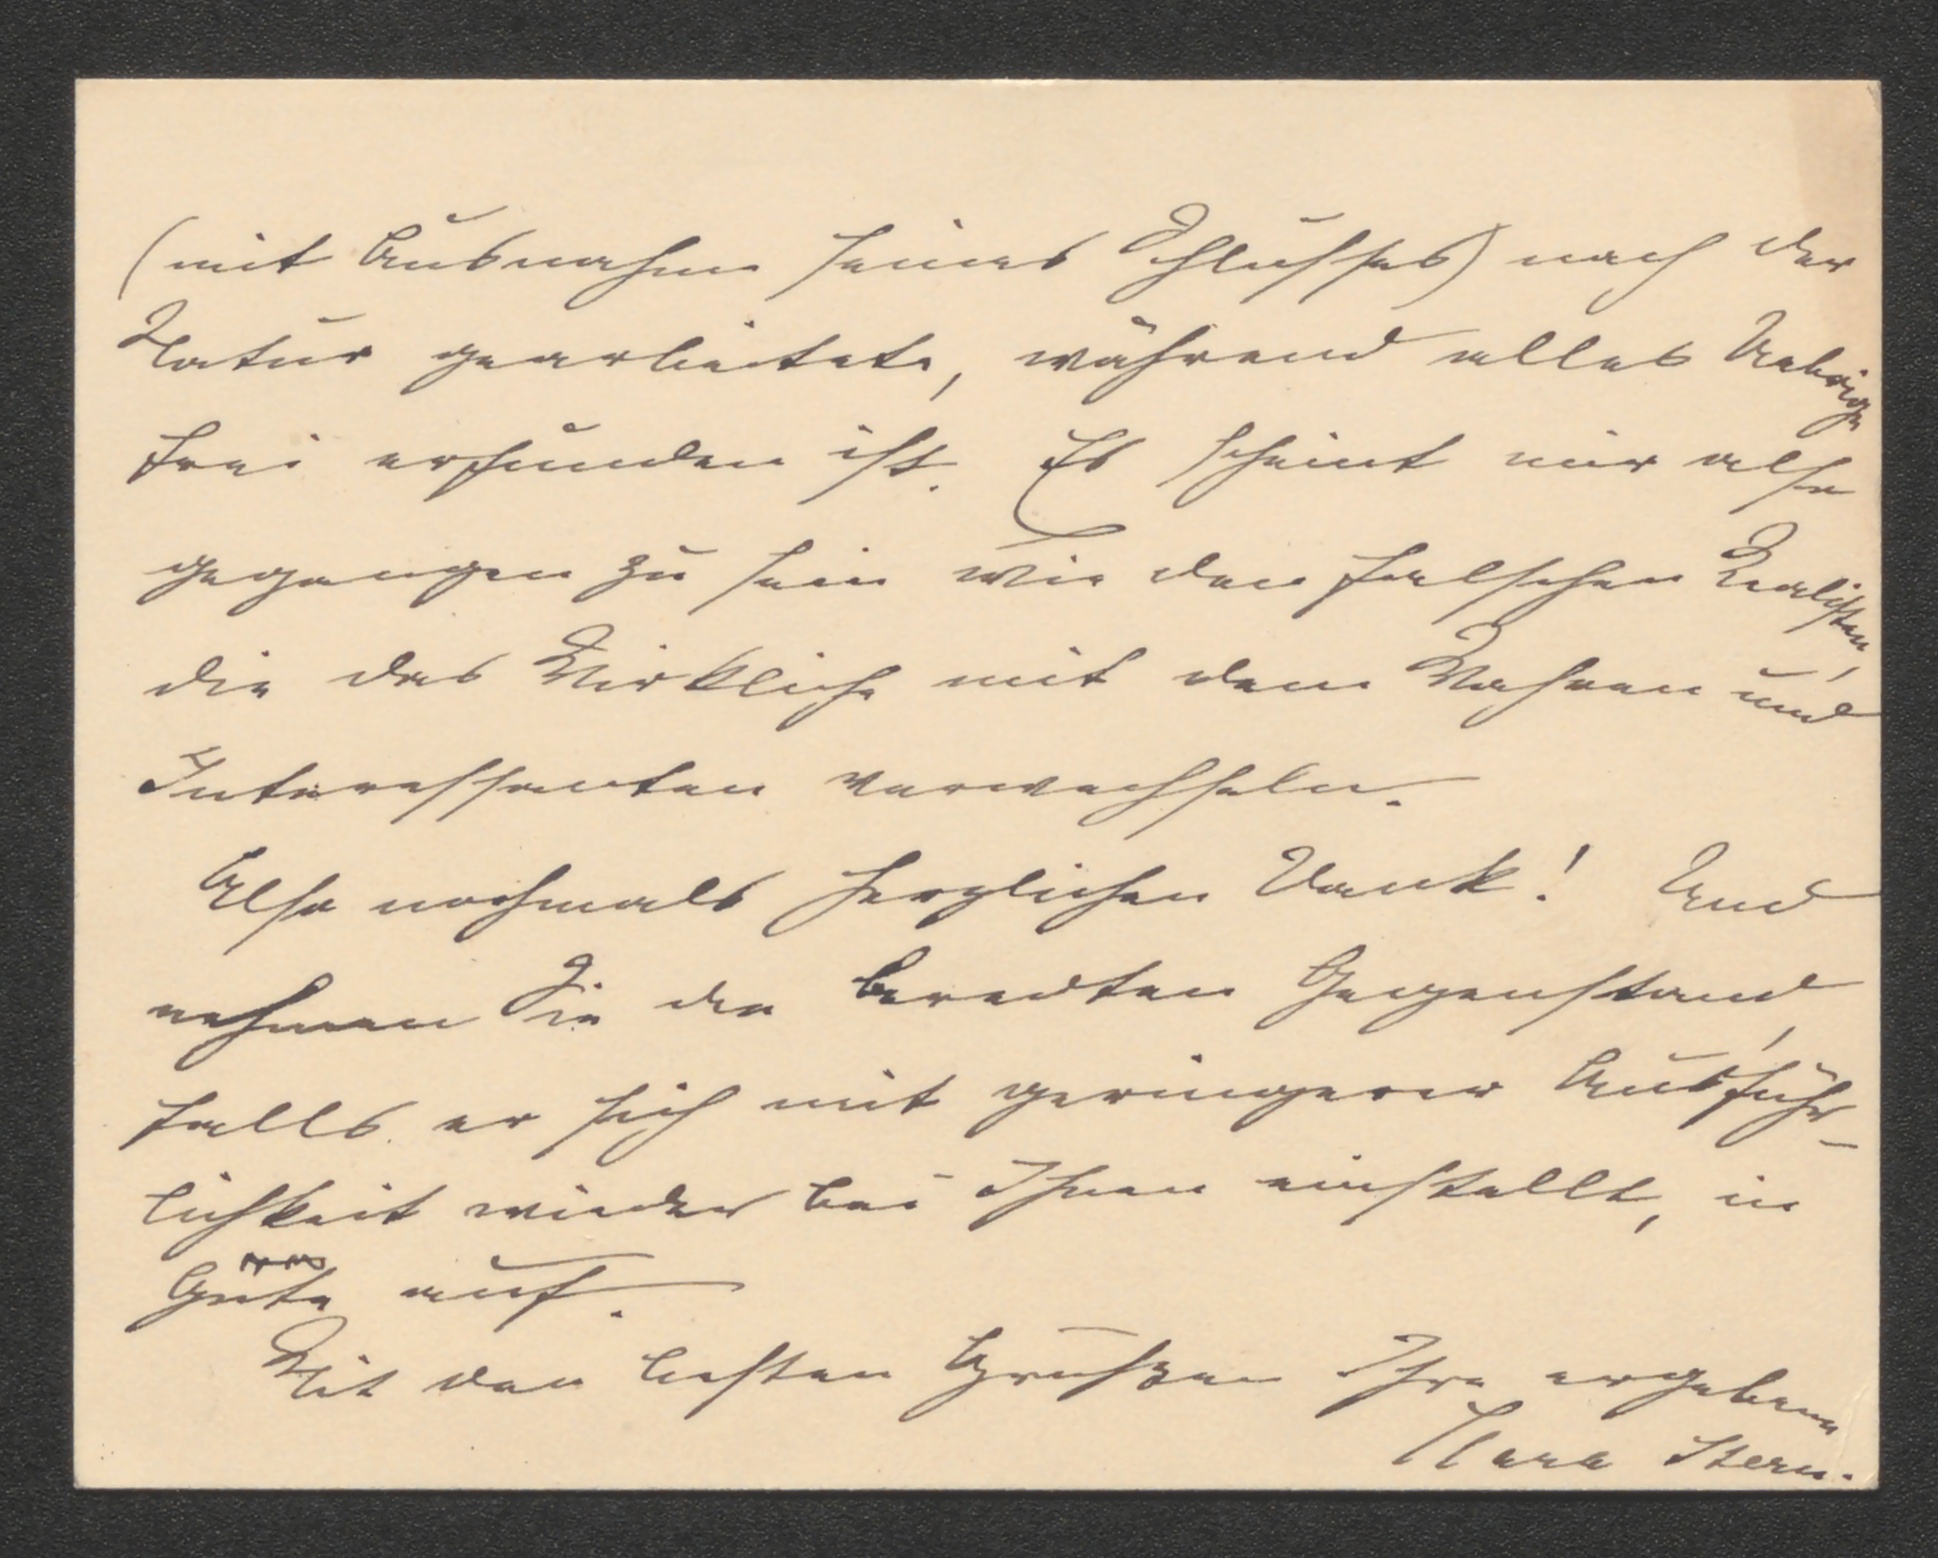 (mit Ausnahme seines Schlusses) nach der
Natur gearbeitet, während alles Uebrige
frei erfunden ist. Es scheint mir also
gegangen zu sein wie den falschen Realisten,
die das Wirkliche mit dem Wahren und
Interessanten verwechseln.
Also nochmals herzlichen Dank! Und
nehmen Sie den beredten Gegenstand,
falls er sich mit geringerer Ausführ-
lichkeit wieder bei Ihnen einstellt, in
Güte auf.
Mit den besten Grüßen Ihre ergebene
Stern.